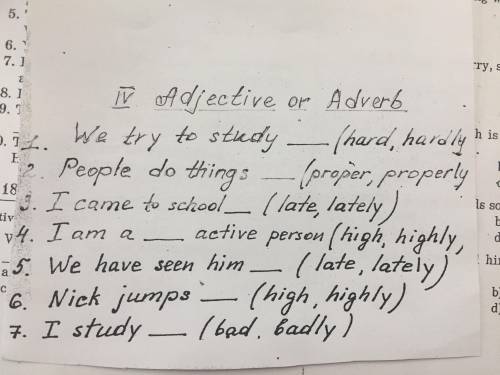 5.
6.
7.
8.
9.
18
IV Adjective or Adverb
1. We try to study __ (hard, hardly
2. People do things __ (proper, properly
3. I came to school __ (late, lately)
4. I am a __ active person (high, highly,
5. We have seen him __ (late, lately)
6. Nick jumps __ (high, highly)
7. I study __ (bad, badly)